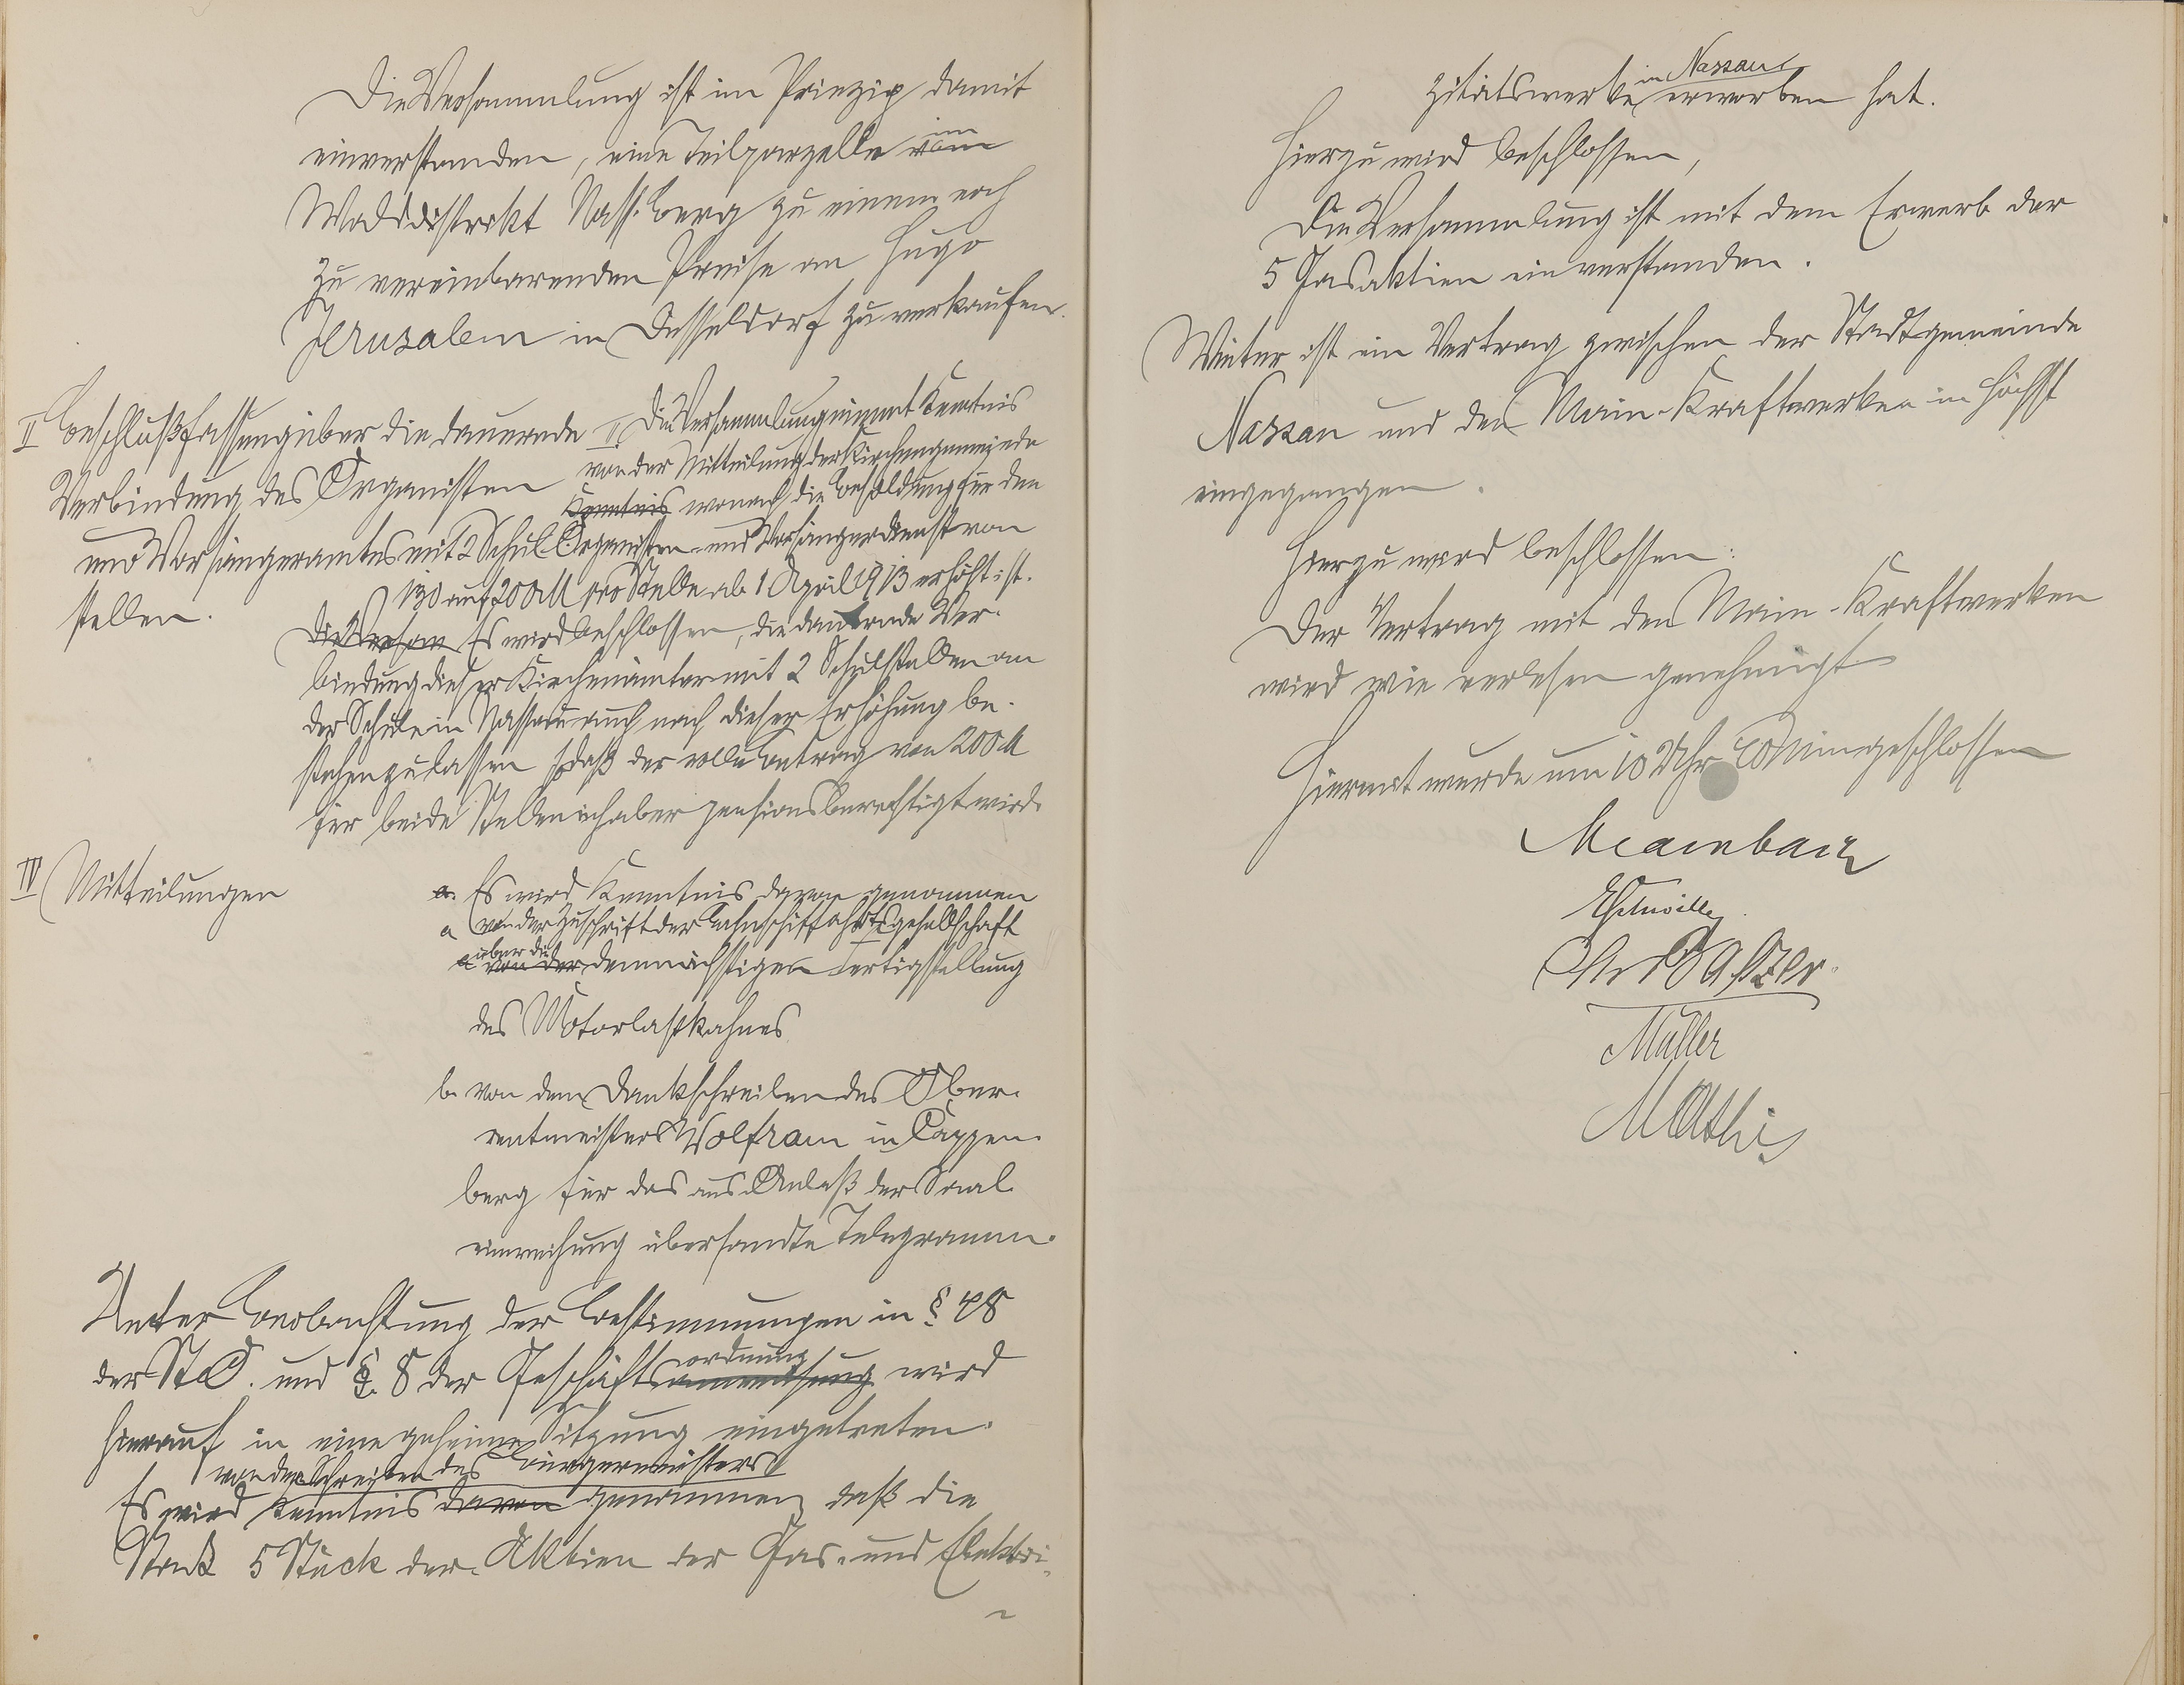 Die Versammlung ist im Prinzip damit
einverstanden, eine Teilparzelle vom im
Walddistrikt Nass. berg zu einem noch
zu vereinbarenden Preise an Hugo
Jerusalem in Düsseldorf zu verkaufen.
II Beschlußfassung über die dauernde
Verbindung des Organisten
und Vorsängeramtes mit 2 Schul-
stellen.
II. Die Versammlung nimmt Kenntnis
von der Mitteilung der Kirchengemeinde
Kenntnis wonach die Besoldung für den
Organisten- und Vorsängerdienst von
130 auf 200 M pro Stelle ab 1 April 1913 erhöht ist.
Die Versam Es wird beschlossen, die dauernde Ver-
bindung dieser Kirchenämter mit 2 Schulstellen an
der Schule in Nassau auch nach dieser Erhöhung be-
stehen zu lassen sodaß der volle Betrag von 200 M
für beide Stelleninhaber pensionsberechtigt wird.
IV Mitteilungen
a. Es wird Kenntnis davon genommen
a von der Zuschrift der Lahnschiffahrtsgesellschaft
über die
a von der demnächstigen Fertigstellung
des Motorlastkahnes
b. von dem Dankschreiben des Ober-
rentmeisters Wolfram in Cappen-
berg für das aus Anlaß der Saal-
einweihung übersandte Telegramm.
Unter Beobachtung der Bestimmungen in § 48
der St.O. und § 8 der Geschäftsanweisung ordnung wird
hierauf in eine geheime Sitzung eingetreten.
von dem Schreiben des Bürgermeisters
Es wird Kenntnis davon genommen, daß die
Stadt 5 Stück der Aktien der Gas- und Elektri-
zitätswerke in Nassau erworben hat.
Hierzu wird beschlossen,
Die Versammlung ist mit dem Erwerb der
5 Gasaktien einverstanden.
Weiter ist ein Vertrag zwischen der Stadtgemeinde
Nassau und den Main-Kraftwerken in Höchst
eingegangen.
Hierzu wird beschlossen:
Der Vertrag mit den Main-Kraftwerken
wird wie verlesen genehmigt
Hiermit wurde um 10 Uhr 40 Min geschlossen
Chr Balzer.
Müller
Mathis